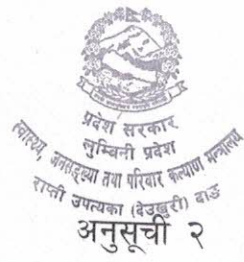 प्रदेश सरकार
लुम्बिनी प्रदेश
स्वास्थ्य, जनसङ्ख्या तथा परिवार कल्याण मन्त्रालय
राप्ती उपत्यका (देउखुरी) दाङ
अनुसूची २